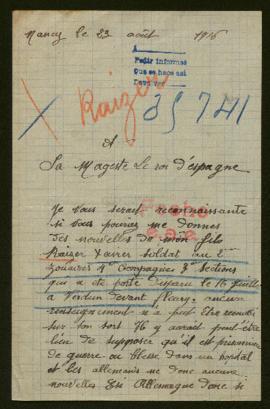 Nancy le 23 août 1916
A
Pedir informes
Que se hace asi
Raizer
35741
A
Sa Magesté Le roi d'espagne
Je vous serait reconnaissante
si vous pouvez me donner
des nouvelles de mon fils
Raizer Xavier soldat au 2e
zouaves Compagnie 3e Sections
qui a été porté disparu le 16 juill
à Verdun devant fleury. aucun
renseignement n'a put être recueilli
sur son sort. Il y aurait peut-être
lieu de supposer qu'il est prisonnier
de guerre ou blessé dans un hopital
et les allemands ne donc aucune
nouvelles En Allemagne donc si